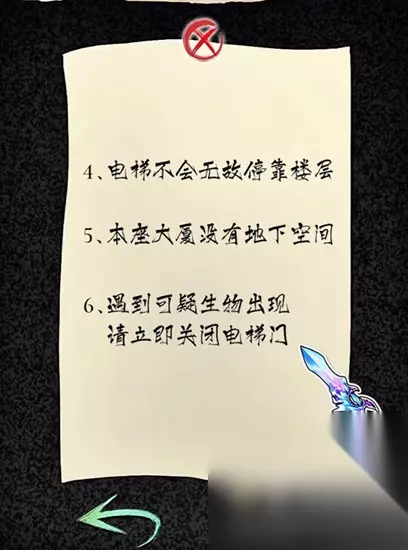 4、电梯不会无故停靠楼层
5、本座大厦没有地下空间
6、遇到可疑生物出现
请立即关闭电梯门